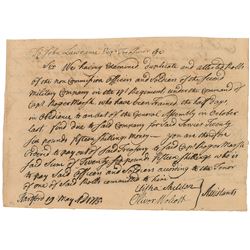 To John Lawrence Esqr Treasurer &c
Sir We having Examined duplicate and attested Rolls
of the non Commission Officers and Soldiers of the Second
Military Company in the 17 Regiment, under the Command of
Capt Roger Marsh, who have been trained the half Days,
in Obedience to an act of the General Assembly in October
last find due to said Company for said Service Twenty
Six pounds fifteen Shillings money you are therefore
Ordered to pay out of said Treasury to said Capt Roger Marsh
said Sum of Twenty Six pounds fifteen shillings who is
to pay Said Officers and Soldiers according to the Tenor
of one of said Rolls committed to him
Hartford 19 May AD 1775
Oliver Wolcott
Assistants